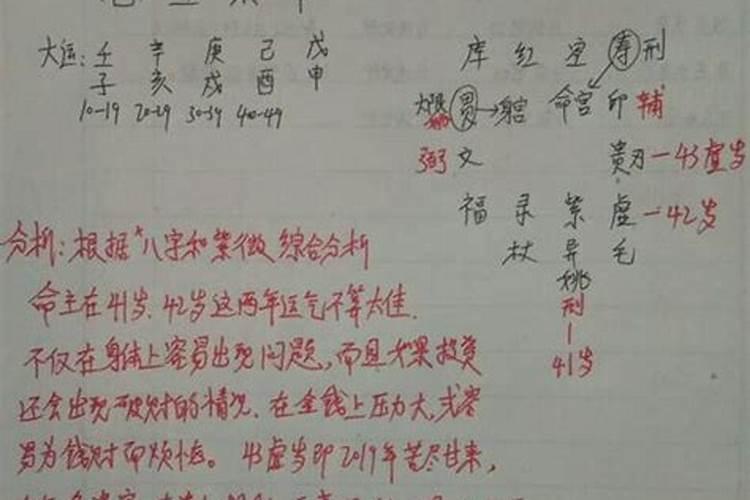 大运: 壬 辛 庚 己 戊
子 亥 戌 酉 申
10-19 20-29 30-39 40-49
库 红 空 寿 刑
大限 贯→ 身宫 命宫 印 辅
弼 文 贵刃—43虚岁
福 录 紫 虚—42岁
杖 异 毛
姚
刑
41岁
分析: 根据"八字和紫微综合分析
命主在41岁、42岁这两年运气不算太佳.
不仅在身体上容易出现问题, 而且如果投资
还会出现破财的情况、在金钱上压力大, 或容
易为钱财而烦恼。43虚岁即2019年苦尽甘来,